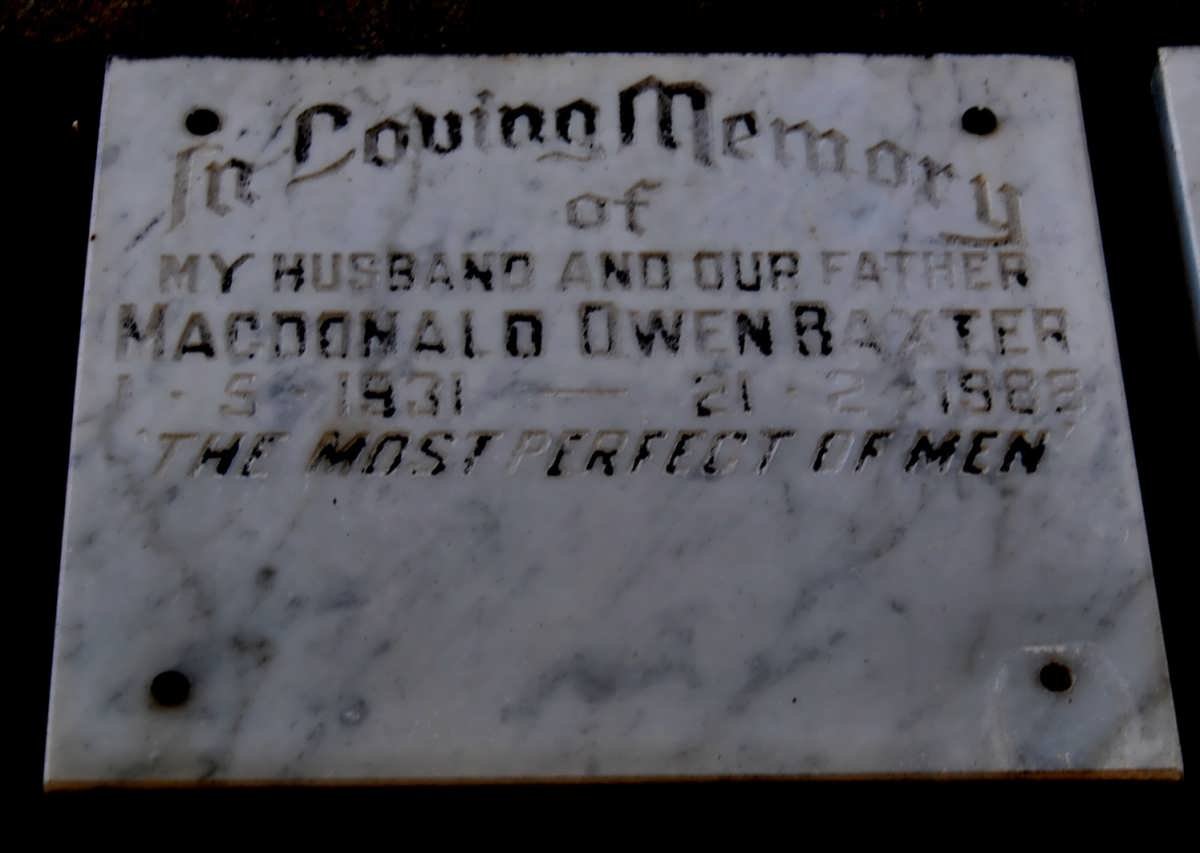 In Loving Memory
of
MY HUSBAND AND OUR FATHER
MACDONALD OWEN BAXTER
1 · 5 · 1931 — 21 · 2 · 1982
"THE MOST PERFECT OF MEN"